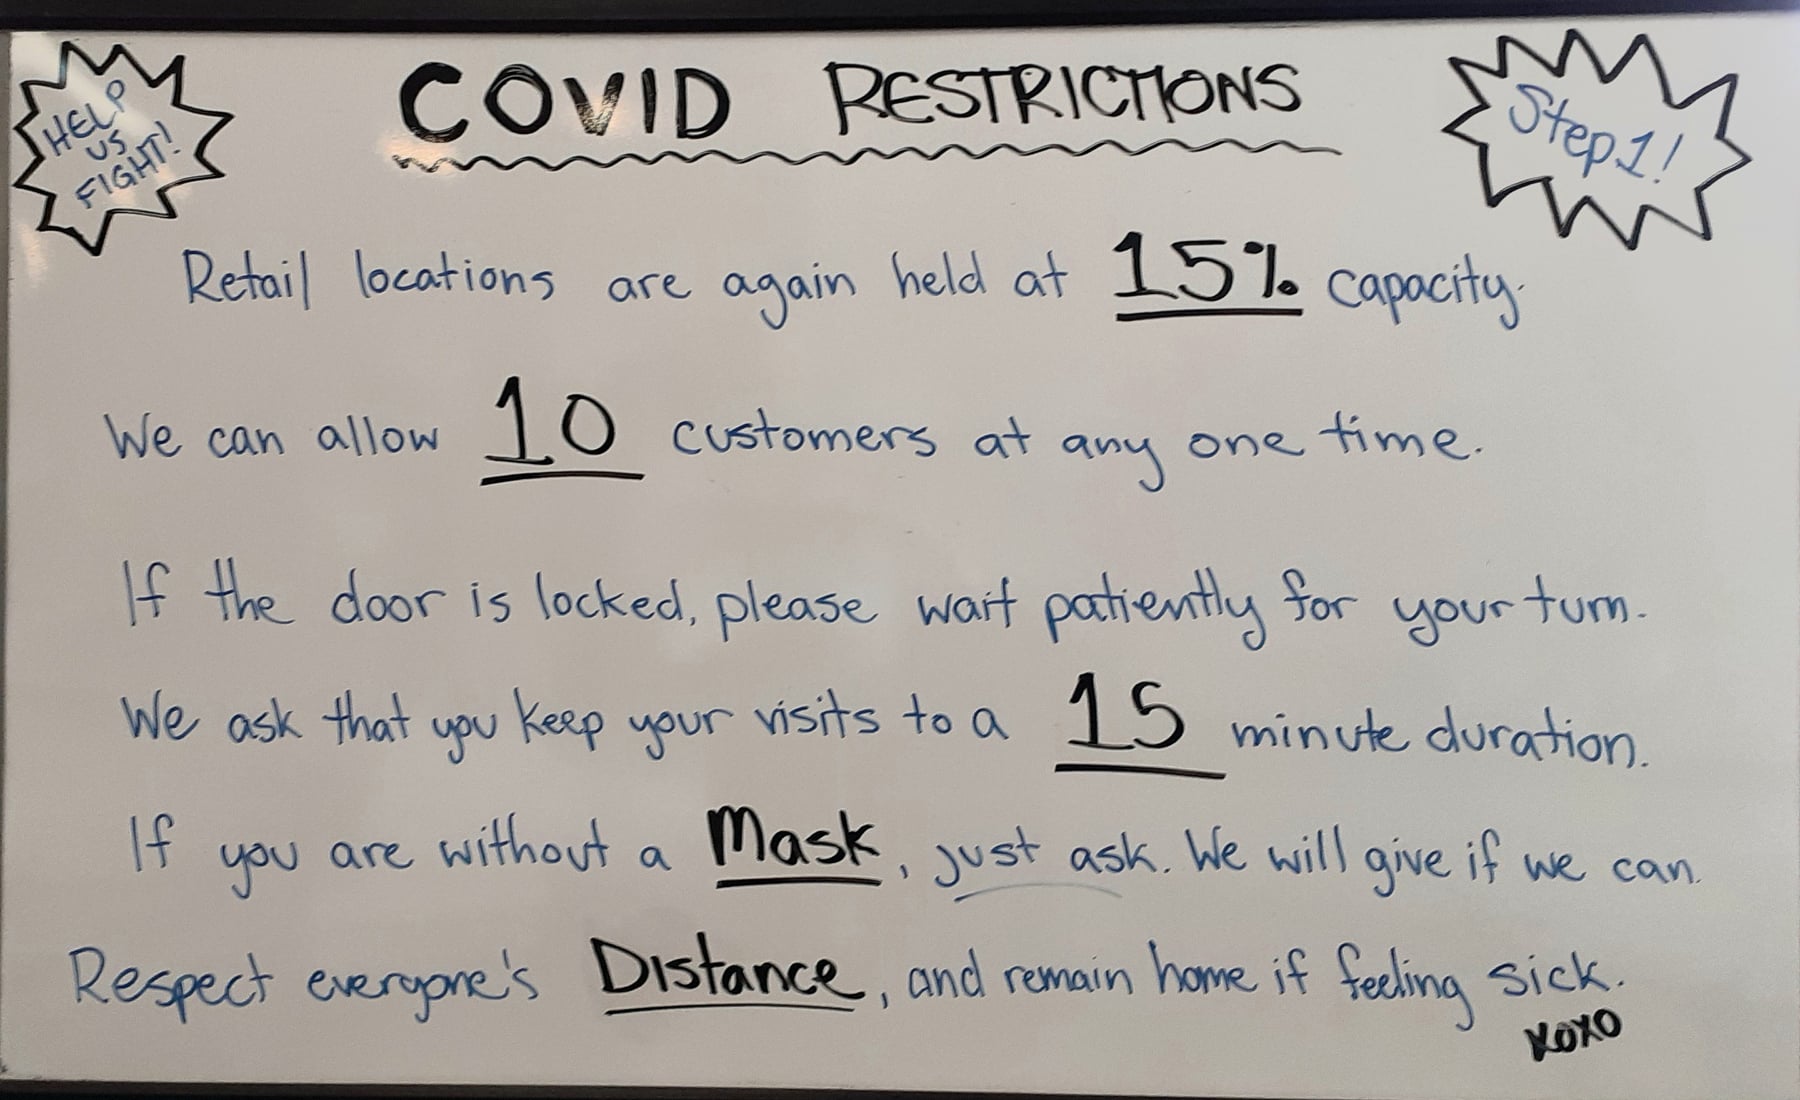 HELP
US
FIGHT!
COVID RESTRICTIONS
Step 1!
Retail locations are again held at 15% capacity.
We can allow 10 customers at any one time.
If the door is locked, please wait patiently for your turn.
We ask that you keep your visits to a 15 minute duration.
If you are without a Mask, just ask. We will give if we can.
Respect everyone's Distance, and remain home if feeling sick.
xoxo